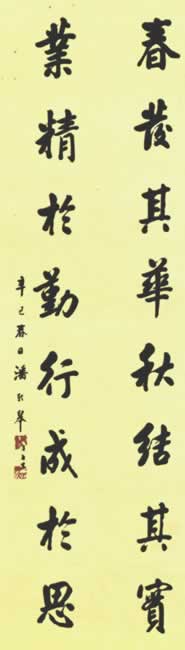 春發其華秋結其實
業精於勤行成於思
辛巳春日潘齡皋